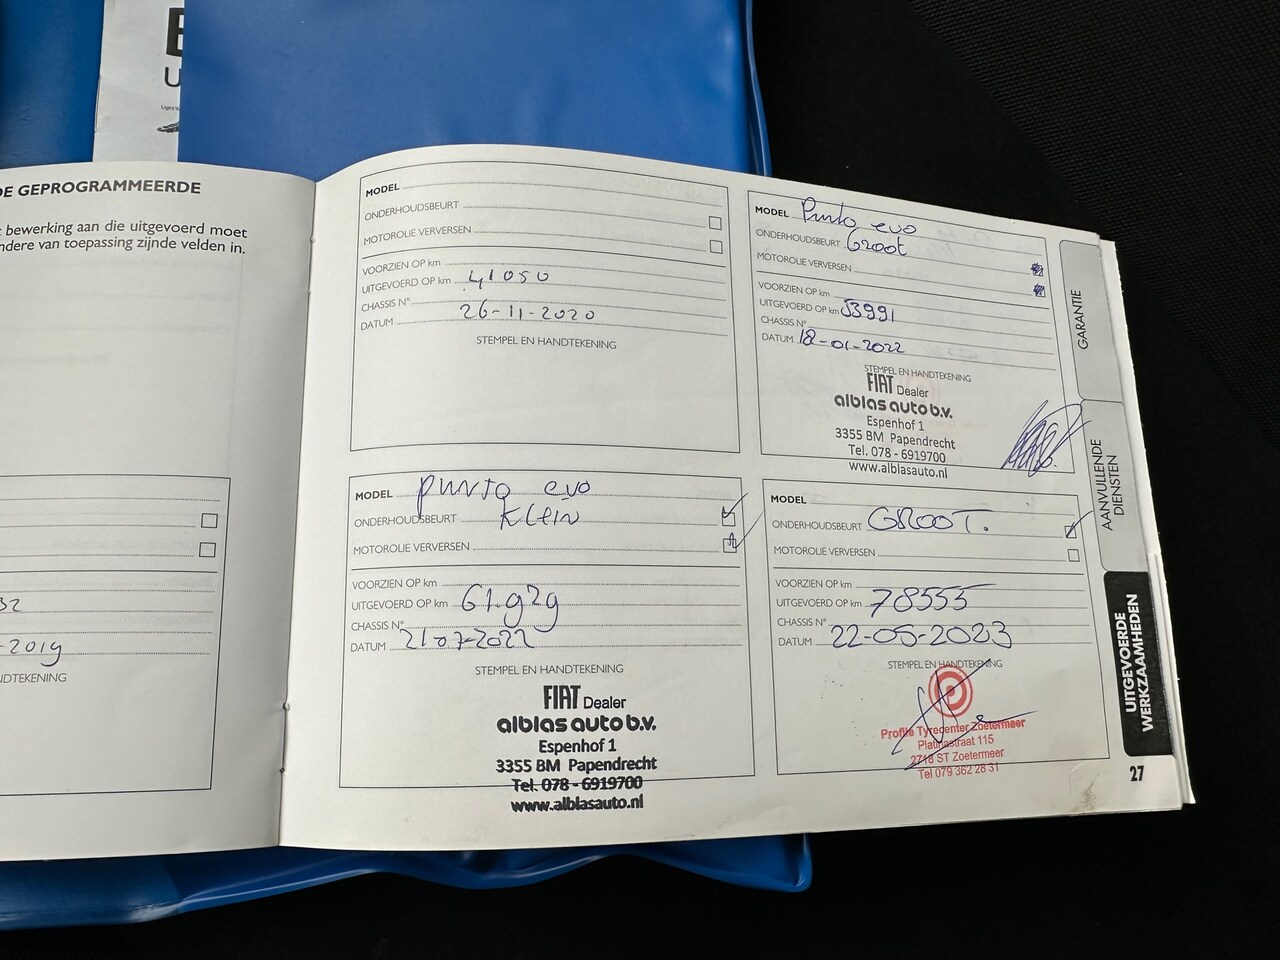 E
U
DE GEPROGRAMMEERDE
bewerking aan die uitgevoerd moet
ndere van toepassing zijnde velden in.
32
-2019
NDTEKENING
MODEL
ONDERHOUDSBEURT
MOTOROLIE VERVERSEN
VOORZIEN OP km
UITGEVOERD OP km 41050
CHASSIS N°
DATUM 26-11-2020
STEMPEL EN HANDTEKENING
MODEL Punto evo
ONDERHOUDSBEURT Groot
MOTOROLIE VERVERSEN
VOORZIEN OP km
UITGEVOERD OP km 53991
CHASSIS N°
DATUM 18-01-2022
STEMPEL EN HANDTEKENING
FIAT Dealer
alblas auto b.v.
Espenhof 1
3355 BM Papendrecht
Tel. 078 - 6919700
www.alblasauto.nl
MODEL punto evo
ONDERHOUDSBEURT Klein
MOTOROLIE VERVERSEN
VOORZIEN OP km
UITGEVOERD OP km 61.929
CHASSIS N°
DATUM 21-07-2022
STEMPEL EN HANDTEKENING
FIAT Dealer
alblas auto b.v.
Espenhof 1
3355 BM Papendrecht
Tel. 078 - 6919700
www.alblasauto.nl
MODEL
ONDERHOUDSBEURT GROOT.
MOTOROLIE VERVERSEN
VOORZIEN OP km
UITGEVOERD OP km 78555
CHASSIS N°
DATUM 22-05-2023
STEMPEL EN HANDTEKENING
Profile Tyrecenter Zoetermeer
Platinastraat 115
2718 ST Zoetermeer
Tel 079 362 28 31
GARANTIE
AANVULLENDE
DIENSTEN
UITGEVOERDE
WERKZAAMHEDEN
27